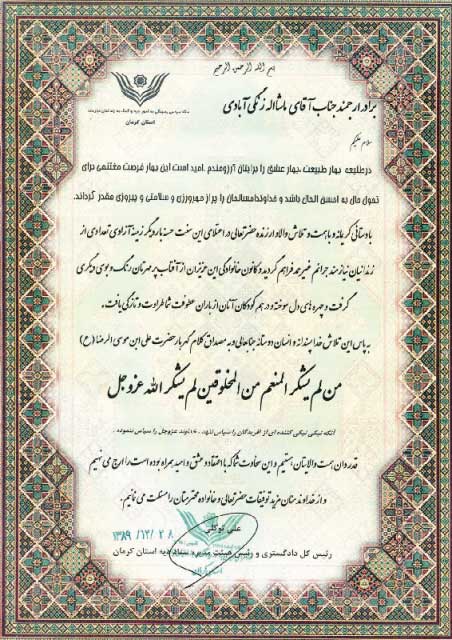 بسم الله الرحمن الرحیم
ستاد مردمی رسیدگی به امور دیه و کمک به زندانیان نیازمند
استان کرمان
برادر ارجمند جناب آقای ماشااله زنگی آبادی
سلام علیکم
درطلیعه بهار طبیعت ،بهار عشق را برایتان آرزومندم .امید است این بهار فرصت مغتنمی برای
تحول حال به احسن الحال باشد و خداوندامسالمان را پر از مهرورزی و سلامتی و پیروزی مقدر گرداند.
بادستانی کریمانه و باهمت و تلاش والا و ارزنده حضرتعالی در اعتلای این سنت حسنه بار دیگر زمینه آزادی تعدادی از
زندانیان نیازمند جرائم غیرعمد فراهم گردید و کانون خانوادگی این عزیزان از آفتاب پر مهرتان رنگ و بوی دیگری
گرفت و چهره های دل سوخته و درهم کودکان آنان از باران عطوفت شما طراوت و تازگی یافت.
به پاس این تلاش خداپسندانه و انسان دوستانه جنابعالی و به مصداق کلام گهربار حضرت علی ابن موسی الرضا (ع)
من لم یشکر المنعم من المخلوقین لم یشکر الله عزوجل
آنکه نیکی نیکی کننده ای از آفریدگان را سپاس ننهد ، خداوند عزوجل را سپاس ننموده .
قدردان همت والایتان هستیم و این سخاوت شما که با اعتقاد و عشق و امید همراه بوده است را ارج می نهیم
و از خداوند منان مزید توفیقات حضرتعالی و خانواده محترمتان را مسئلت می نمائیم.
علی توکلی
۱۳۸۹/۱۲/۲۸
رئیس کل دادگستری و رئیس هیئت مدیره ستاد دیه استان کرمان